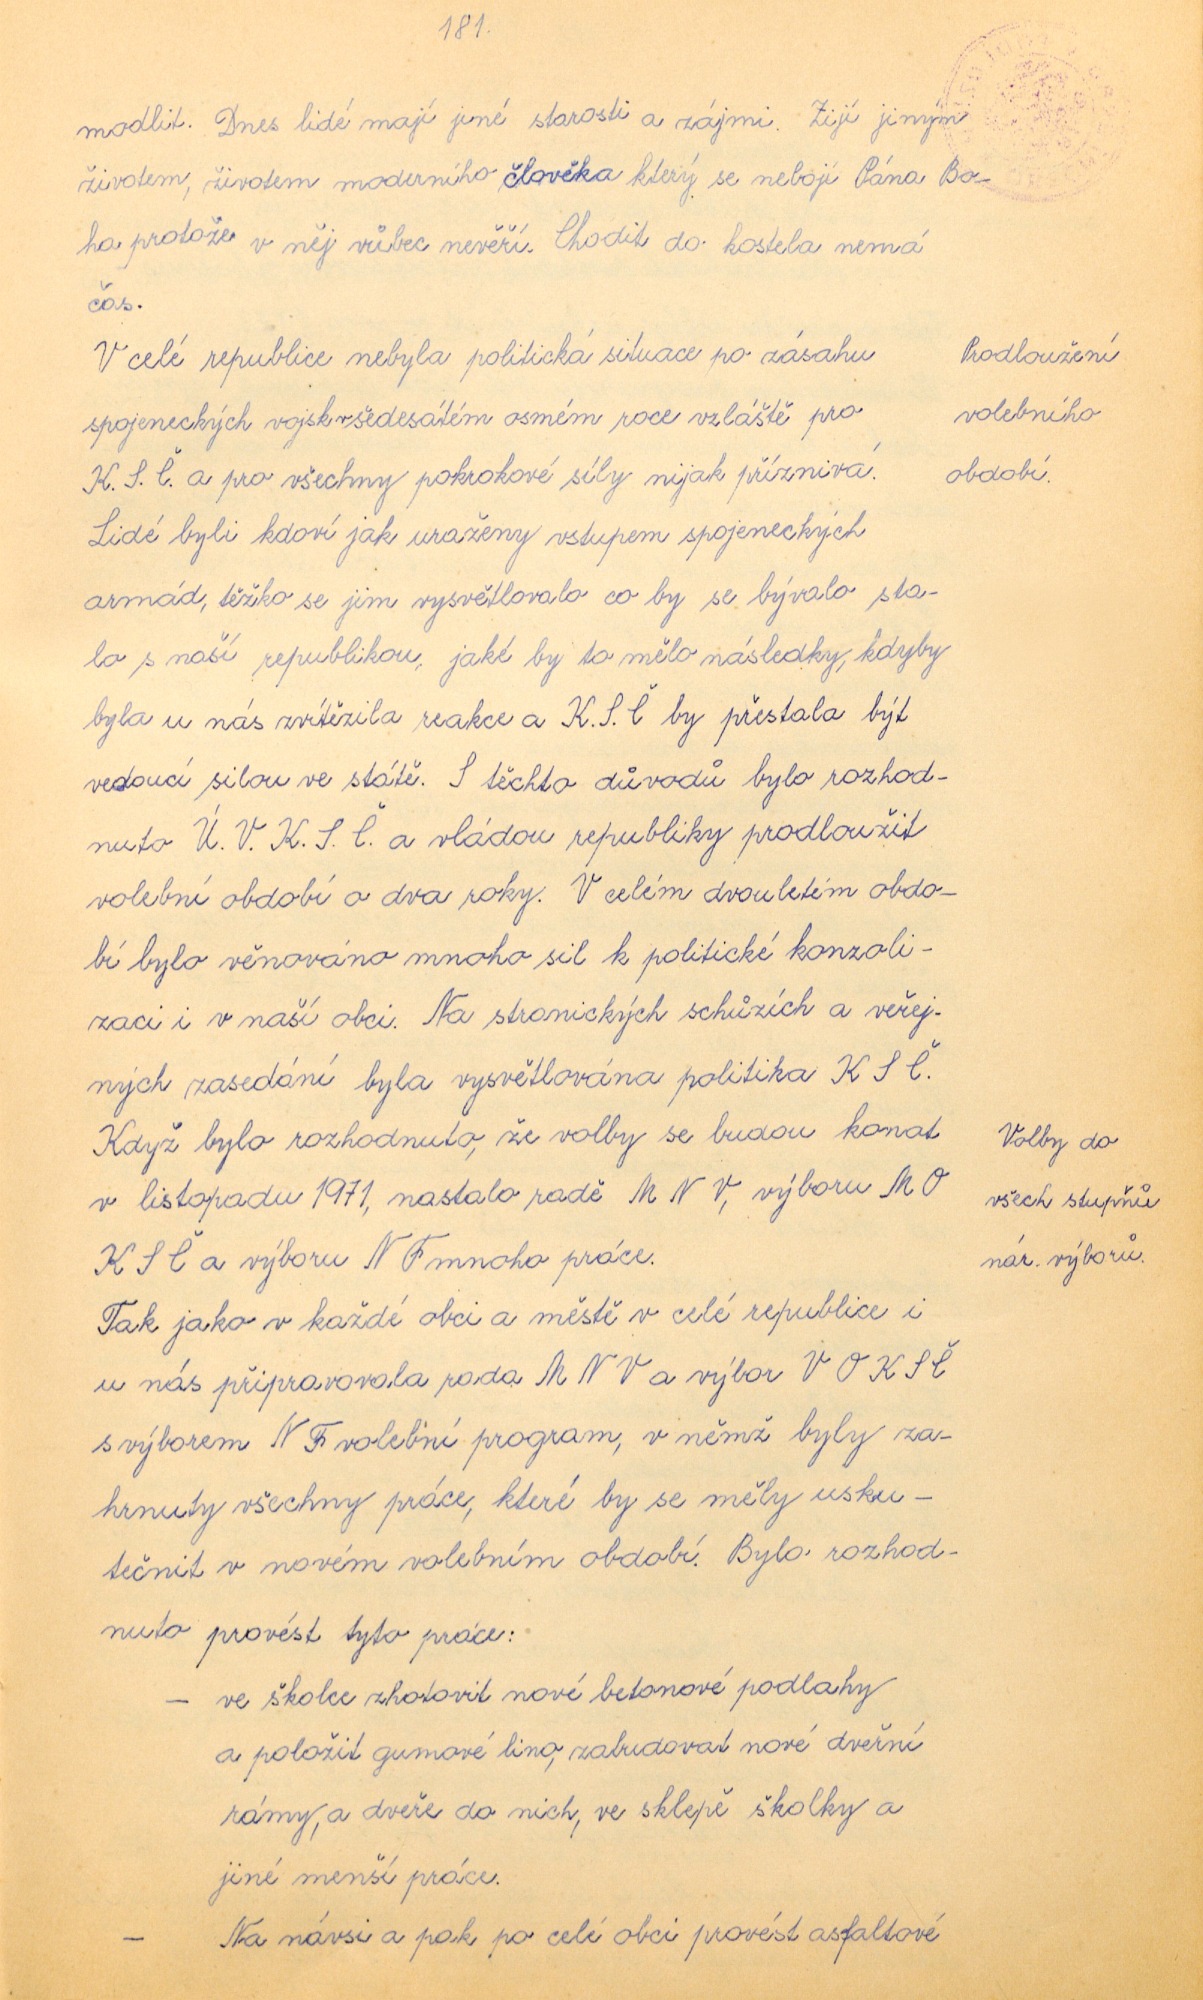 181.
modlit. Dnes lidé mají jiné starosti a zájmi. Žijí jiným
životem, životem moderního člověka který se nebojí Pána Bo-
ha protože v něj vůbec nevěří. Chodit do kostela nemá
čas.
V celé republice nebyla politická situace po zásahu
Prodloužení
spojeneckých vojsk v šedesátém osmém roce vzláště pro
volebního
K. S. Č. a pro všechny pokrokové síly nijak příznivá.
období.
Lidé byli kdoví jak uraženy vstupem spojeneckých
armád, těžko se jim vysvětlovalo co by se bývalo sta-
lo s naší republikou, jaké by to mělo následky, kdyby
byla u nás zvítězila reakce a K.S.Č by přestala být
vedoucí silou ve státě. S těchto důvodů bylo rozhod-
nuto Ú. V. K. S. Č. a vládou republiky prodloužit
volební období o dva roky. V celém dvouletém obdo-
bí bylo věnováno mnoho sil k politické konzoli-
zaci i v naší obci. Na stranických schůzích a veřej-
ných zasedání byla vysvětlována politika K S Č.
Když bylo rozhodnuto, že volby se budou konat
Volby do
v listopadu 1971, nastalo radě M N V, výboru M O
všech stupňů
K S Č a výboru N F mnoho práce.
nár. výborů.
Tak jako v každé obci a městě v celé republice i
u nás připravovala rada M N V a výbor V O K S Č
s výborem N F volební program, v němž byly za-
hrnuty všechny práce, které by se měly usku-
tečnit v novém volebním období. Bylo rozhod-
nuto provést tyto práce:
- ve školce zhotovit nové betonové podlahy
a položit gumové lino, zabudovat nové dveřní
rámy, a dveře do nich, ve sklepě školky a
jiné menší práce.
- Na návsi a pak po celé obci provést asfaltové